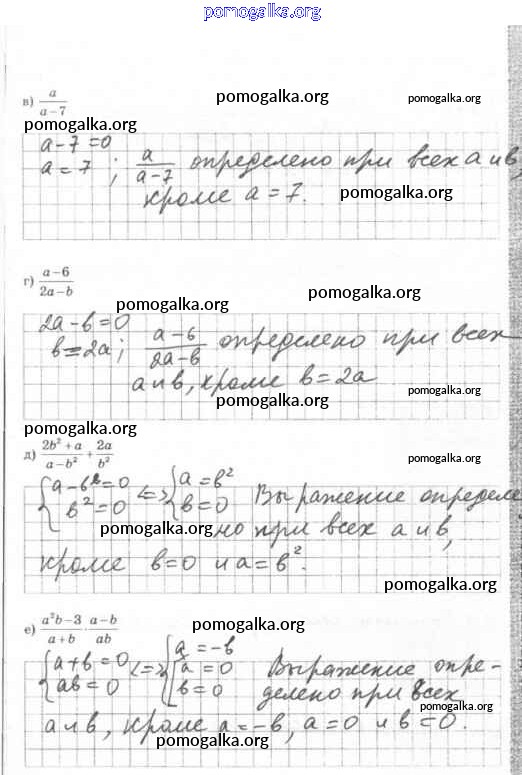 pomogalka.org
в) a/(a−7)
pomogalka.org pomogalka.org
pomogalka.org
a−7=0
a=7; a/(a−7) определено при всех a и b,
кроме a=7. pomogalka.org
г) (a−6)/(2a−b)
pomogalka.org pomogalka.org
2a−b=0
b=2a; (a−6)/(2a−b) определено при всех
a и b, кроме b=2a
pomogalka.org pomogalka.org
pomogalka.org
д) (2b²+a)/(a−b²) + 2a/b² pomogalka.org
{a−b²=0 <=> {a=b² Выражение определе
b²=0 b=0
pomogalka.org но при всех a и b,
кроме b=0 и a=b².
pomogalka.org
е) (a²b−3)/(a+b) · (a−b)/ab pomogalka.org
{a+b=0 <=> {a=−b
ab=0 a=0 Выражение опре-
b=0 делено при всех
a и b, кроме a=−b, a=0 и b=0. pomogalka.org
pomogalka.org